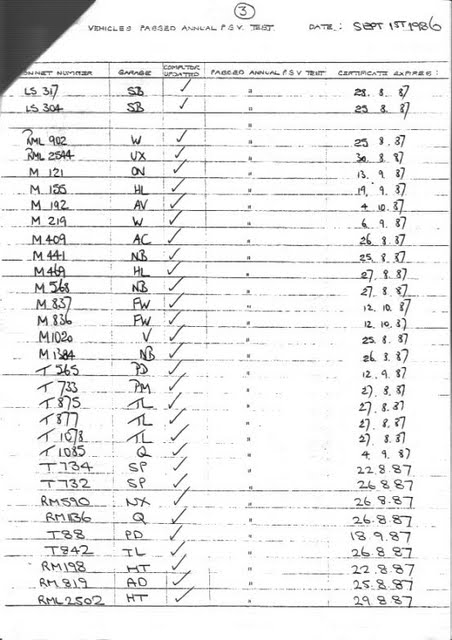 3
VEHICLES PASSED ANNUAL P.S.V. TEST. DATE: SEPT 1ST 1986
BONNET NUMBER GARAGE COMPUTER UPDATED PASSED ANNUAL P.S.V TEST CERTIFICATE EXPIRES:
LS 317 SB ✓ " 28. 8. 87
LS 304 SB ✓ " 25 8. 87
RML 902 W ✓ " 25 8. 87
RML 2544 UX ✓ " 30. 8. 87
M 121 ON ✓ " 13. 9. 87
M 155 HL ✓ " 19. 9. 87
M 192 AV ✓ " 4 10. 87
M 219 W ✓ " 6 9. 87
M 409 AC ✓ " 26. 8. 87
M 441 NB ✓ " 25. 8. 87
M 469 HL ✓ " 27. 8. 87
M 568 NB ✓ " 27. 8. 87
M 837 FW ✓ " 12. 10. 87
M 836 FW ✓ " 12. 10. 87
M1020 V ✓ " 25. 8. 87
M 1384 NB ✓ " 26 8. 87
T 565 PD ✓ " 12. 9. 87
T 733 PM ✓ " 27. 8. 87
T 875 TL ✓ " 27. 8. 87
T 877 TL ✓ " 27. 8. 87
T 1078 TL ✓ " 27. 8. 87
T 1085 Q ✓ " 4 9. 87
T 734 SP ✓ " 22.8.87
T 732 SP ✓ " 26 8.87
RM590 NX ✓ " 26 8.87
RM1136 Q ✓ " 26.8.87
T88 PD ✓ " 18 9.87
T842 TL ✓ " 26.8.87
RM198 HT ✓ " 22.8.87
RM 819 AD ✓ " 25.8.87
RML2502 HT ✓ " 29 8.87